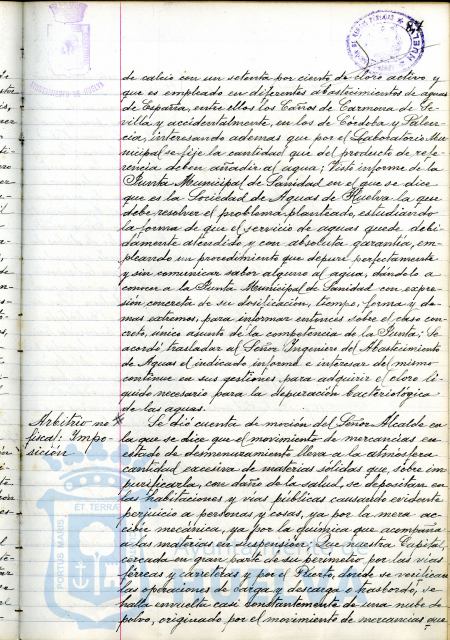 de calcio con un setenta por ciento de cloro activo y
que es empleado en diferentes abastecimientos de aguas
de España, entre ellos los Caños de Carmona de Se-
villa y accidentalmente, en los de Córdoba y Palen-
cia, interesando ademas que por el Laboratorio Mu-
nicipal se fije la cantidad que del producto de refe-
rencia deben añadir al agua; Visto informe de la
Junta Municipal de Sanidad en el que se dice
que es la Sociedad de Aguas de Huelva la que
debe resolver el problema planteado, estudiando
la forma de que el servicio de aguas quede debi-
damente atendido y con absoluta garantía, em-
pleando un procedimiento que depure perfectamente
y sin comunicar sabor alguno al agua, dándolo a
conocer a la Junta Municipal de Sanidad con expre-
sión concreta de su dosificación, tiempo, forma y de-
mas extremos, para informar entonces sobre el caso con-
creto, único asunto de la competencia de la Junta; Se
acordó trasladar al Señor Ingeniero del Abastecimiento
de Aguas el indicado informe e interesar del mismo
continue en sus gestiones para adquirir el cloro lí-
quido necesario para la depuración bacteriologica
de las aguas.
Arbitrio no
fiscal: Impo-
sición
Se dió cuenta de moción del Señor Alcalde en
la que se dice que el movimiento de mercancias en
estado de desmenuzamiento lleva a la atmósfera
cantidad excesiva de materias sólidas que, sobre im-
purificarla, con daño de la salud, se depositan en
las habitaciones y vias públicas causando evidente
perjuicio a personas y cosas, ya por la mera ac-
ción mecánica, ya por la química que acompaña
a las materias en suspensión; Que nuestra Capital,
cercada en gran parte de su perímetro por las vias
férreas y carreteras y por el Puerto, donde se verifican
las operaciones de carga y descarga o trasbordo, se
halla envuelta casi constantemente de una nube de
polvo, originado por el movimiento de mercancias que
PORTUS MARIS
ET TERRAE
Ayuntamiento de